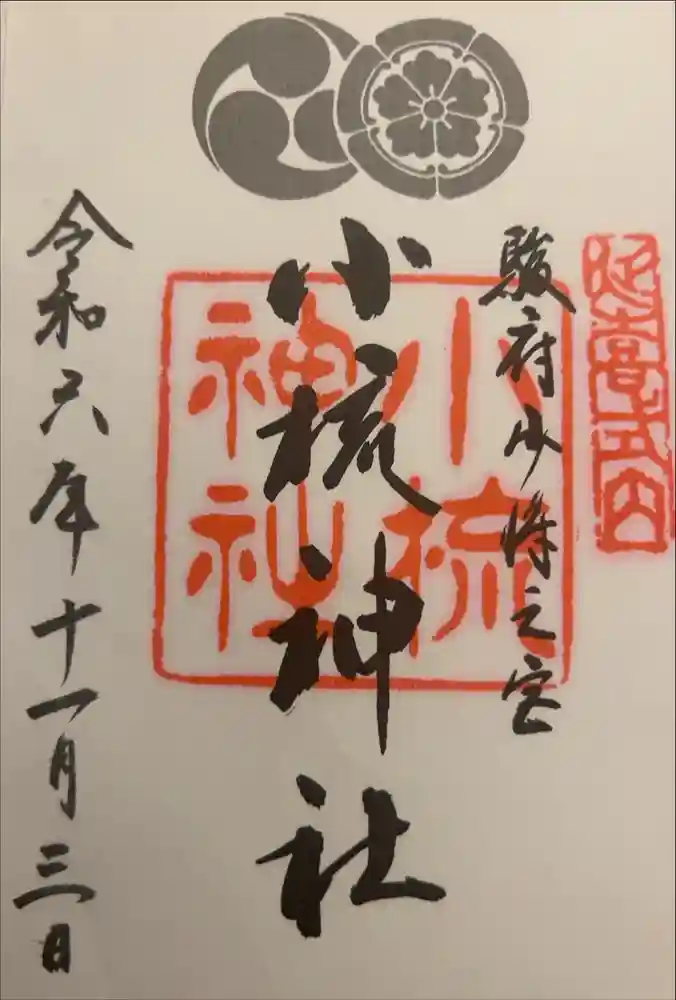 延喜式内
駿府少将之宮
小梳神社
小梳
神社
令和六年十一月三日